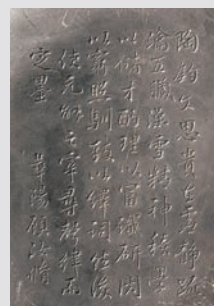 陶鈞文思貴在虛靜疏
瀹五藏澡雪精神積學
以儲才酌理以富識研閱
以窮照馴致以繹詞然後
使元解之宰尋聲律而
定墨 華陽顧汝脩